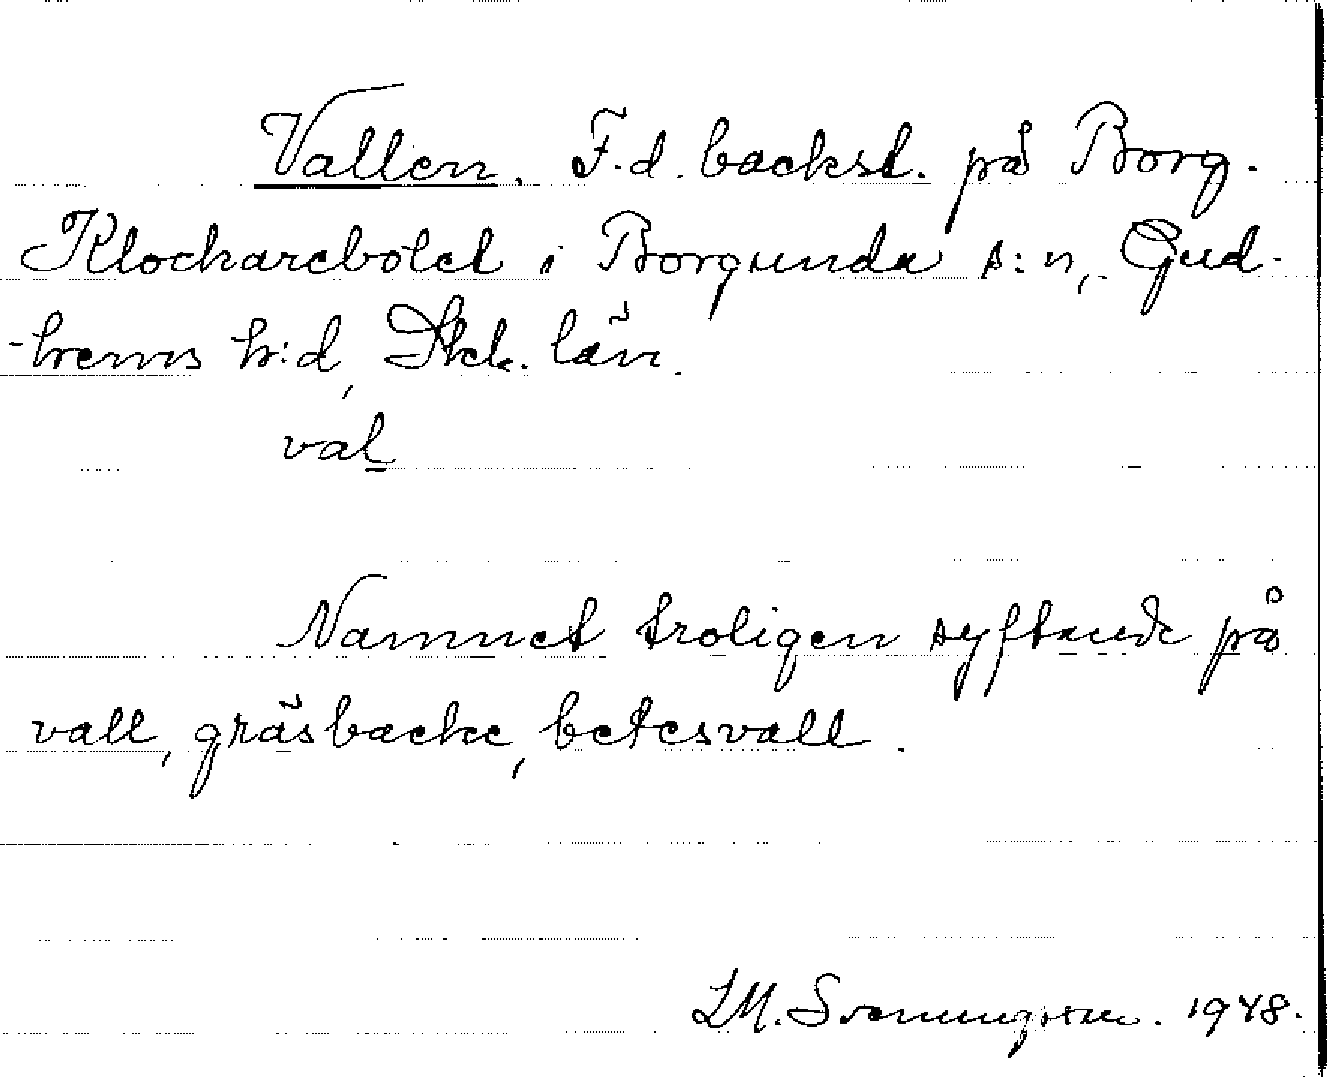 Vallen. F.d. backst. på Borg.
Klockarebolet i Borgunda s:n, Gud-
-hems h:d, Skb. län.
val
Namnet troligen syftande på
vall, gräsbacke, betesvall.
LM. Svenungsson. 1948.